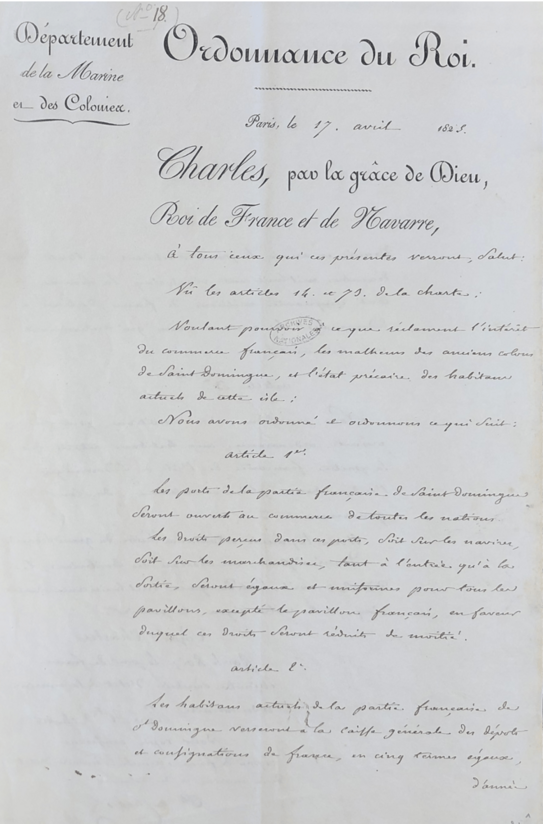 (N° 18.)
Département
de la Marine
et des Colonies.
Ordonnance du Roi.
Paris, le 17. avril 1825.
Charles, par la grâce de Dieu,
Roi de France et de Navarre,
à tous ceux qui ces présentes verront, Salut:
Vû les articles 14. et 73. de la charte;
Voulant pourvoir à ce que réclament l'intérêt
du commerce français, les malheurs des anciens colons
de Saint Domingue, et l'état précaire des habitans
actuels de cette isle;
Nous avons ordonné et ordonnons ce qui suit:
article 1er.
Les ports de la partie française de Saint Domingue
seront ouverts au commerce de toutes les nations
Les droits perçus dans ces ports, soit sur les navires,
soit sur les marchandises, tant à l'entrée qu'à la
sortie, seront égaux et uniformes pour tous les
pavillons, excepté le pavillon français, en faveur
duquel ces droits seront réduits de moitié.
article 2e.
Les habitans actuels de la partie française de
St Domingue verseront à la caisse générale des dépôts
et consignations de france, en cinq termes égaux,
d'année
ARCHIVES
NATIONALES